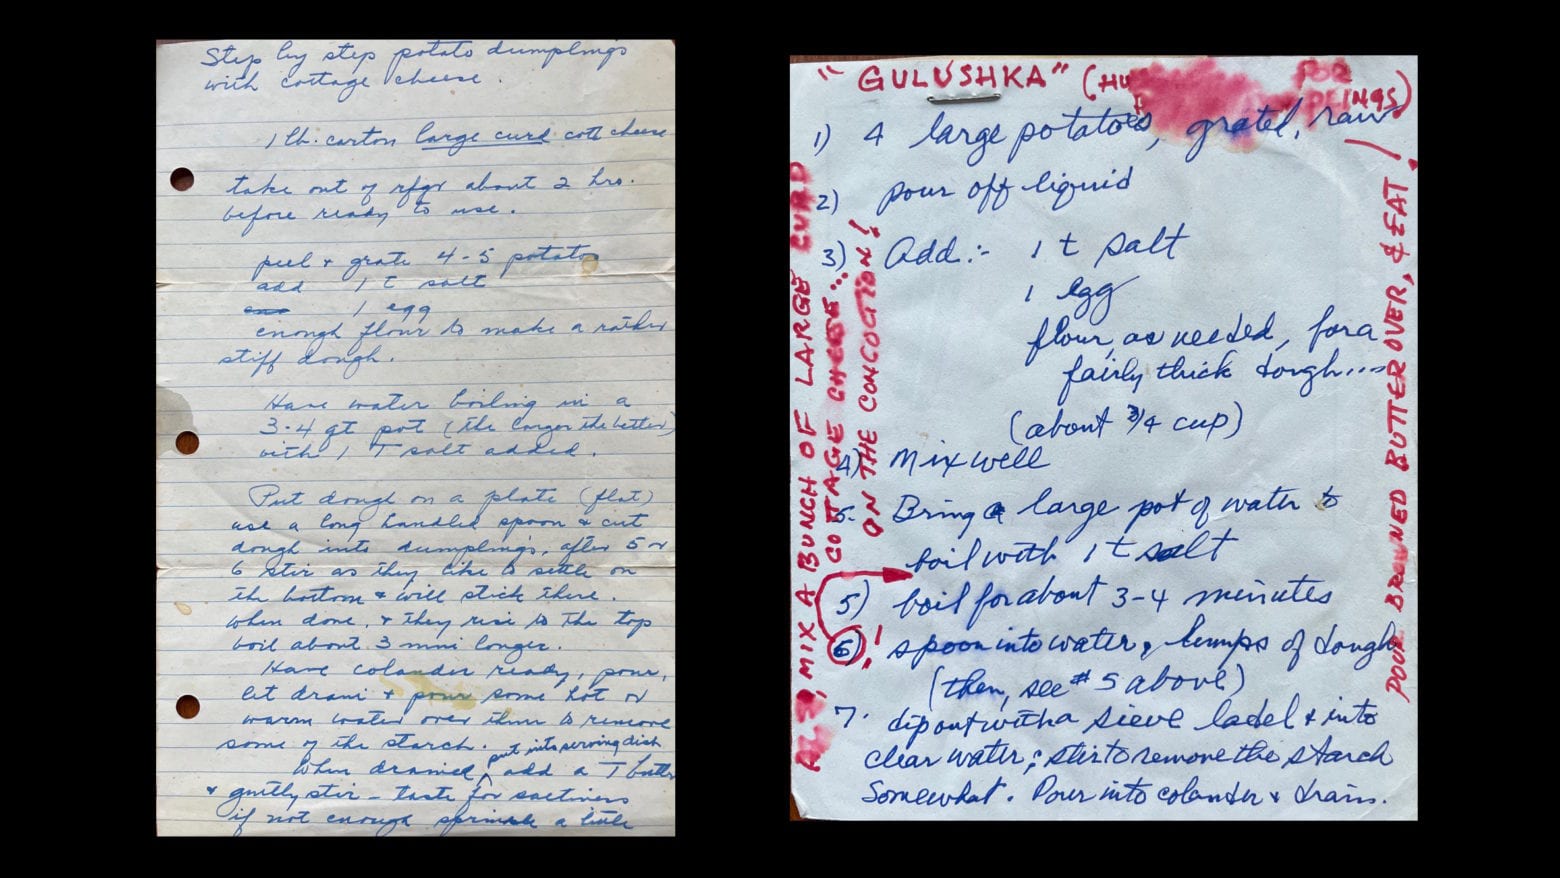 Step by step potato dumplings
with cottage cheese.
1 lb. carton large curd cott cheese
take out of rfgr about 2 hrs.
before ready to use.
peel + grate 4-5 potatoes
add 1 t salt
1 egg
enough flour to make a rather
stiff dough.
Have water boiling in a
3-4 qt pot (the larger the better)
with 1 T salt added.
Put dough on a plate (flat)
use a long handled spoon & cut
dough into dumplings, after 5 or
6 stir as they like to settle on
the bottom & will stick there.
When done, & they rise to the top
boil about 3 min longer.
Have colander ready, pour,
let drain & pour some hot or
warm water over them to remove
some of the starch.
put into serving dish
When drained, add a T butter
& gently stir - taste for saltiness
if not enough sprinkle a little
"GULUSHKA" (HU
FOR
INGS)
1) 4 large potatoes, grated, raw
2) pour off liquid
3) Add:- 1 t salt
1 egg
flour, as needed, for a
fairly thick dough...
(about 3/4 cup)
4) Mix well
5. Bring a large pot of water to
boil with 1 t salt
5) boil for about 3-4 minutes
6)! spoon into water, lumps of dough
(then, see #5 above)
7. dip out with a sieve ladel & into
clear water; stir to remove the starch
Somewhat. Pour into colander & drain.
MIX A BUNCH OF LARGE CURD
COTTAGE CHEESE...
ON THE CONCOCTION!
POUR BROWNED BUTTER OVER, & EAT!